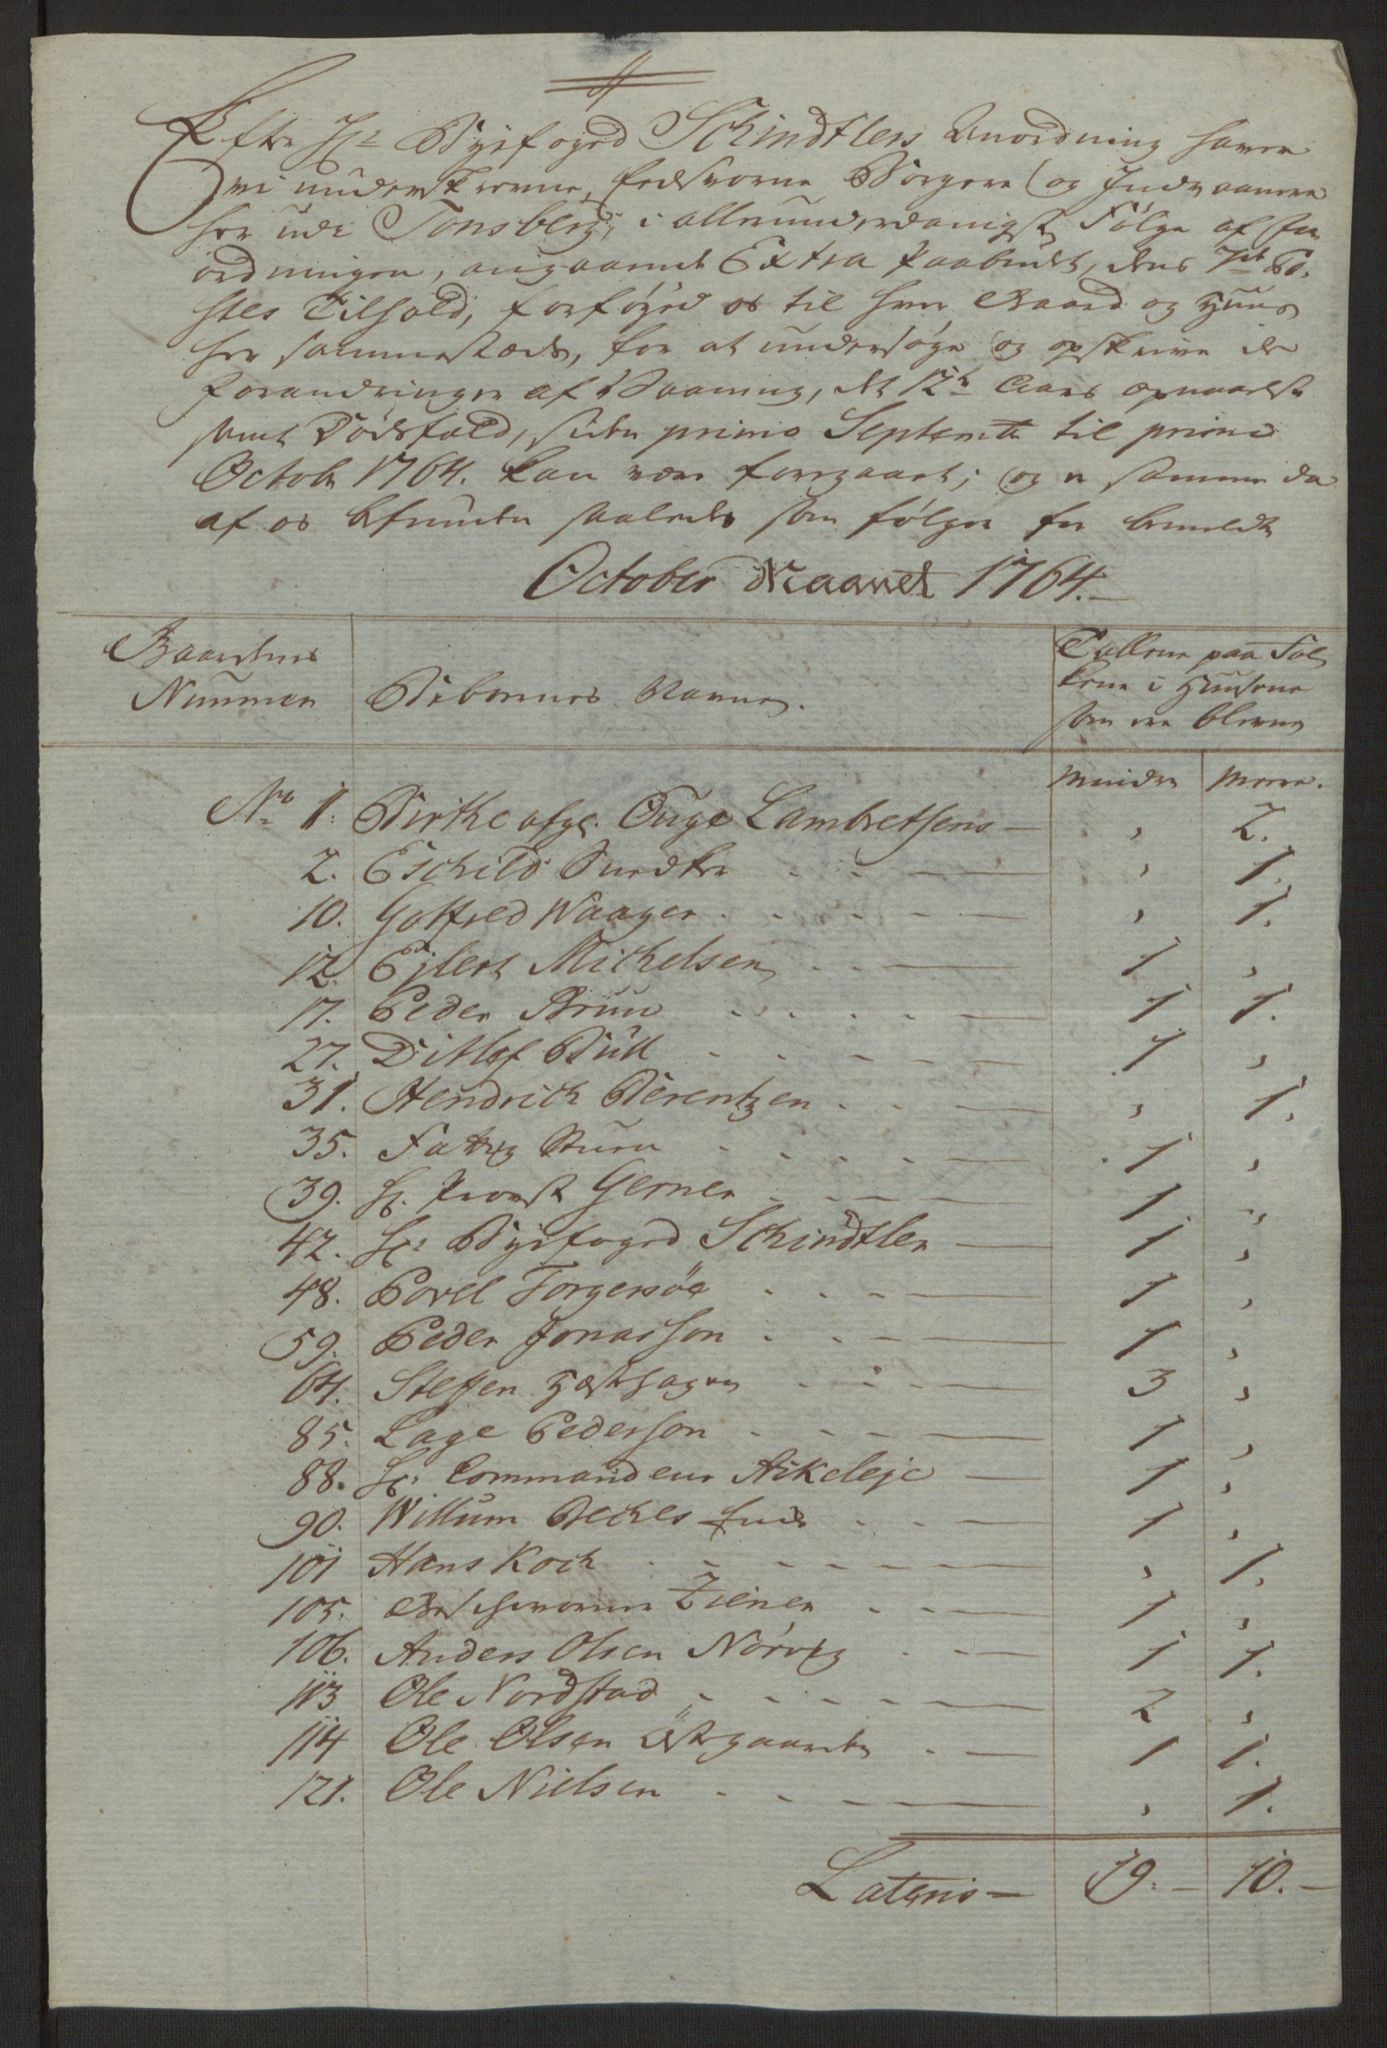 Efter Hr: Byefoged Schindtlers Anordning haver
vi underskrevne, Eedsvorne Borgere og Indvaanere
her udi Tonsberg, i allerunderdanigst Følge af For
ordningen, angaaende Extra Paabudet, dens 7de Po-
stes Tilhold, forføyed os til hver Gaard og Huus
her sammestæds, for at undersøge og opskrive de
forandringer af Vaaning, det 12te Aars opnaaelse
samt Dødsfald, siden primo Septembr til primo
Octobr 1764. kan være foregaaet; og er samme da
af os befunden saaledes som følger for bemeldte
October Maanet 1764.
Gaardenes
Nummer
Beboernes Navne.
Tallene paa Fol
kene i Huusene
som ere blevne
Mindre Meere.
No 1: Birthe afg. Ouge Lambretsens — , 2.
2. Eschild Snedker , 1.
10. Gotfred Waager , 1.
12. Ejlert Michelsen 1 ,
17. Peder Bruu 1 1.
27. Ditlef Bull 1 ,
31. Hendrich Berentzen , 1.
35. Fattig Stuen 1 ,
39. Hr. Provst Gerner 1 ,
42. Hr: Byefoged Schindtler 1 ,
48. Povel Torgersøe 1 ,
59. Peder Jonasson 1 ,
64. Steffen Hæsthagen 3 ,
85. Lage Pederson 1 ,
88. Hr: Commandeur Akeleje 1 ,
90. Willum Beches Enke 1 ,
101 Hans Koch , 1.
105. Zienen 1 ,
106. Anders Olsen Nørvig 1 1.
113 Ole Nordstad 2 ,
114 Ole Olsen Østgaarden 1 1.
121. Ole Nielsen , 1.
Lateris — 19. — 10. —